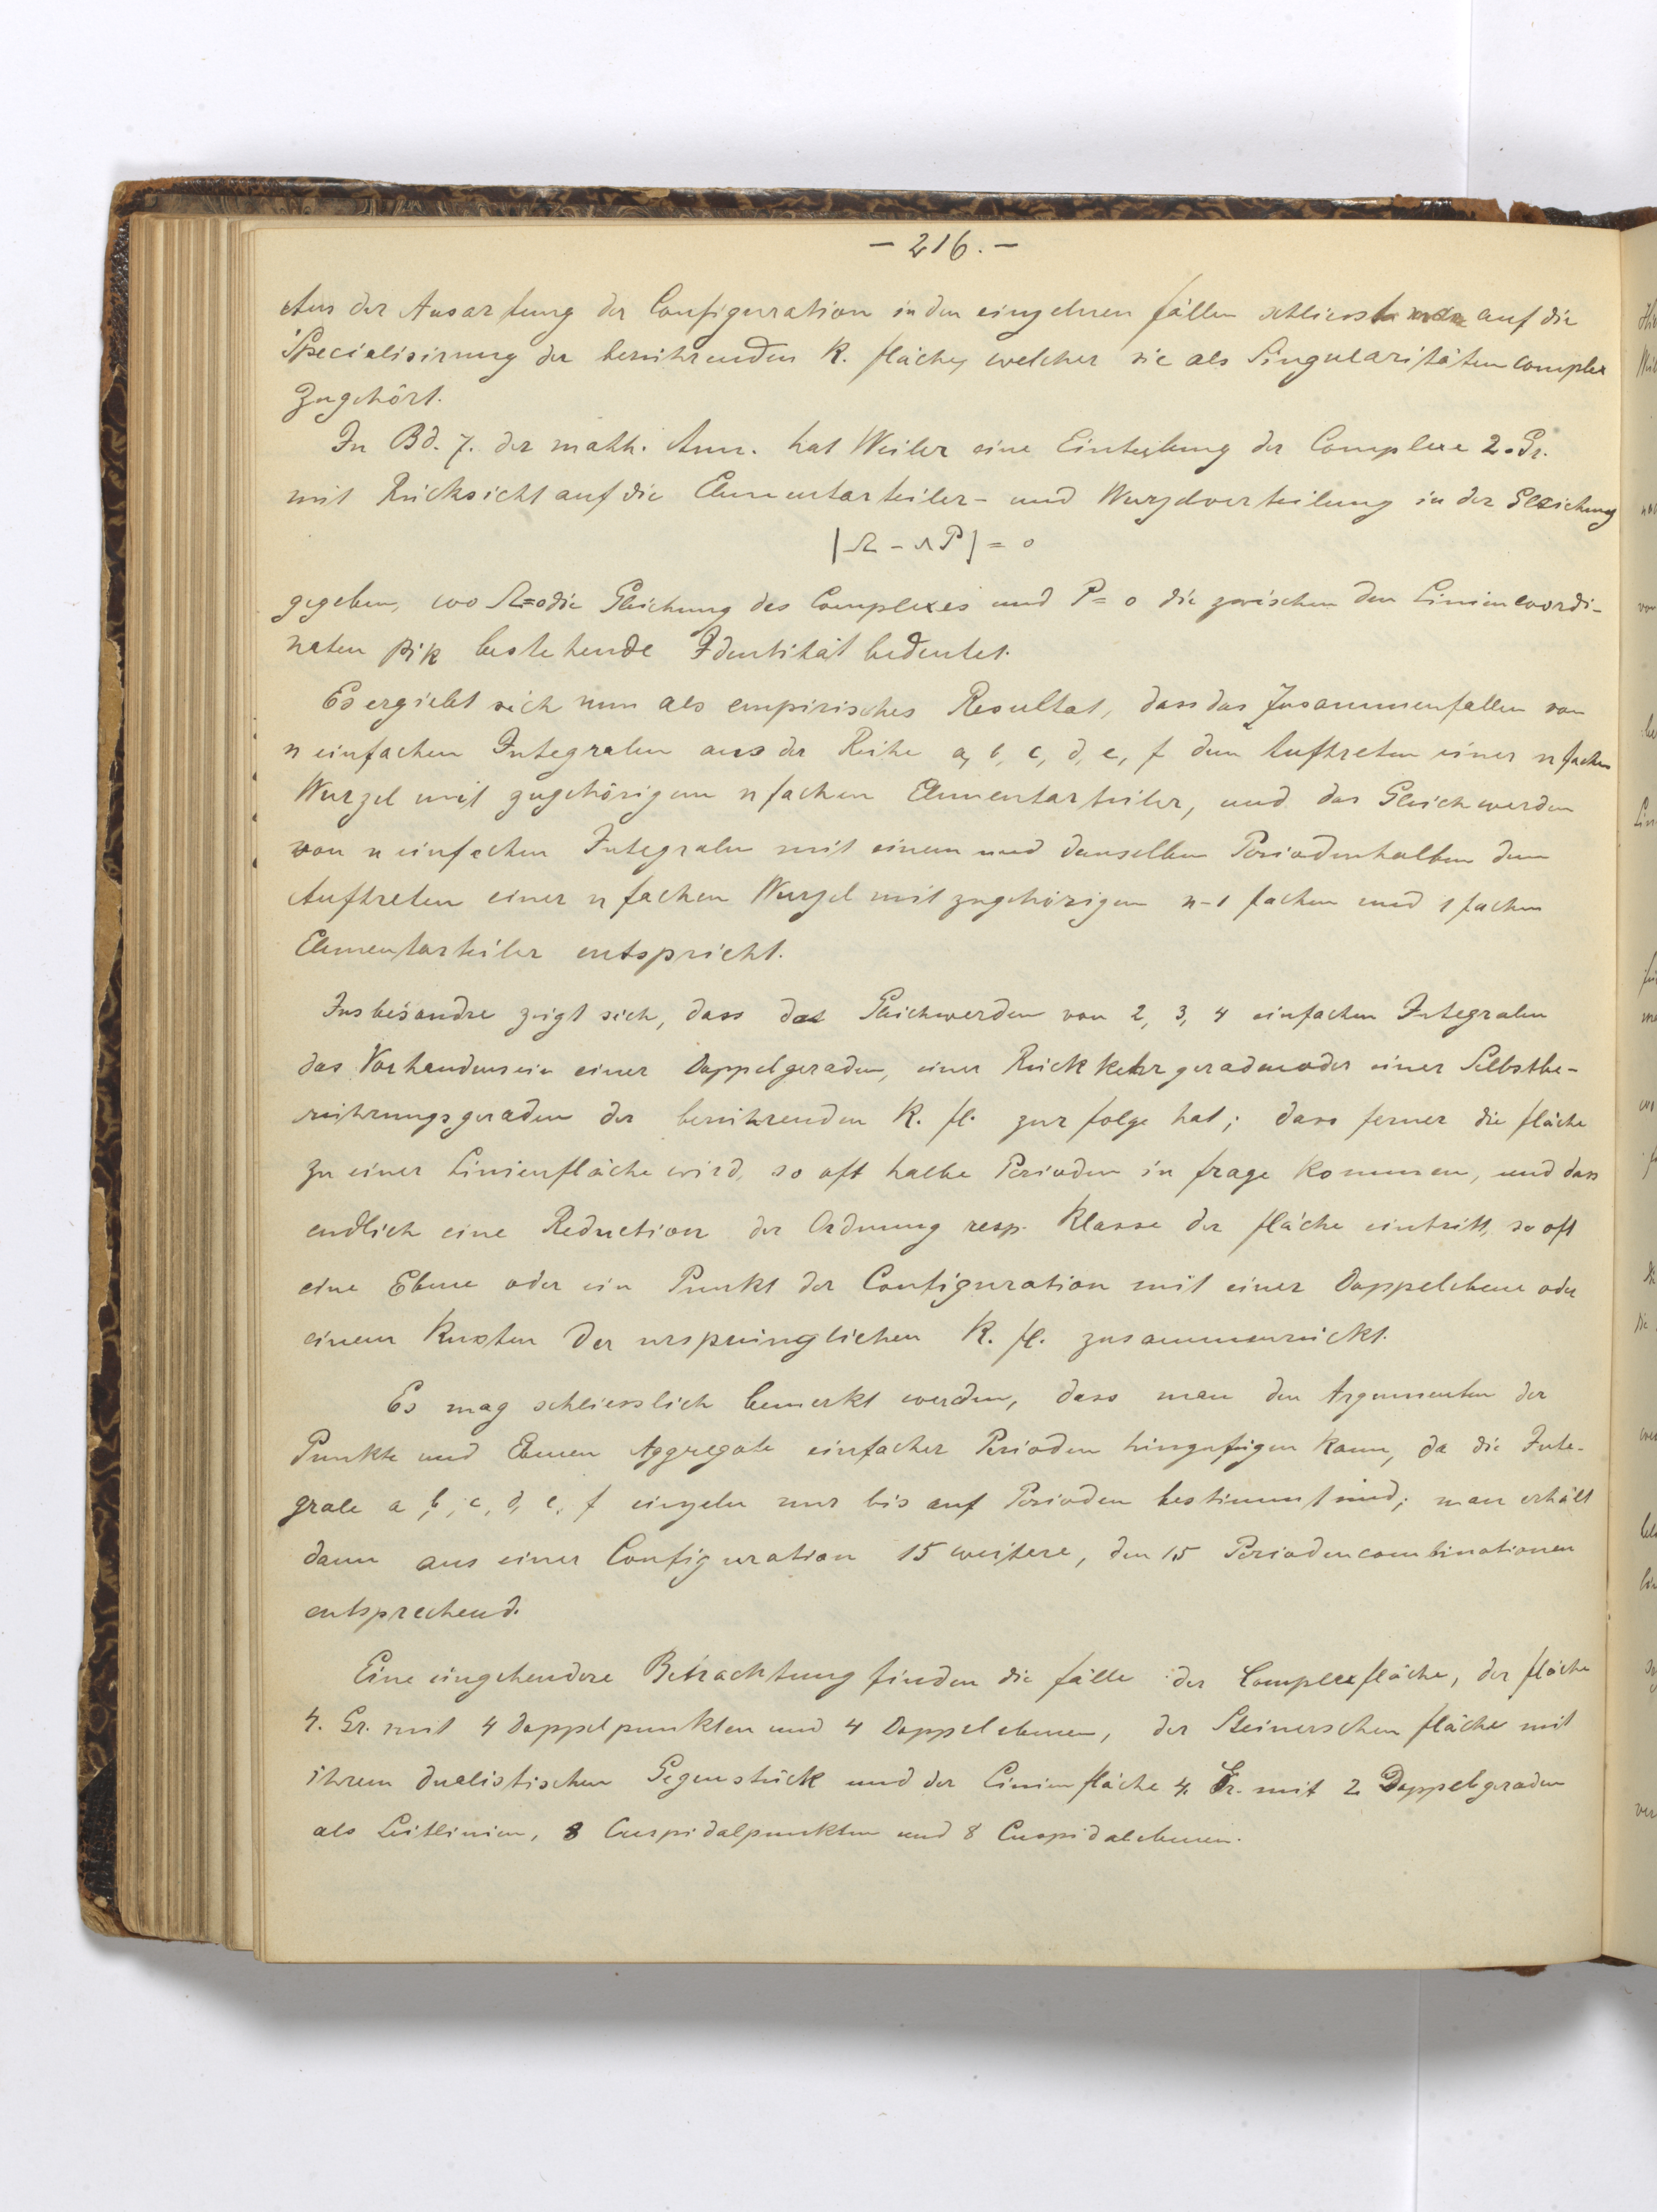 - 216. -
Aus der Ausartung der Configuration in den einzelnen Fällen schliesst man auf die
Specialisirung der berührenden K. Fläche, welcher sie als Singularitätencomplex
zugehört.
In Bd. 7. der math. Ann. hat Weiler eine Einteilung der Complexe 2. Gr.
mit Rücksicht auf die Elementarteiler- und Wurzelverteilung in der Gleichung
|Ω - λP| = 0
gegeben, wo Ω=0 die Gleichung des Complexes und P = 0 die zwischen den Liniencoordi-
naten pik bestehende Identität bedeutet.
Es ergiebt sich nun als empirisches Resultat, dass das Zusammenfallen von
n einfachen Integralen aus der Reihe a, b, c, d, e, f dem Auftreten einer n fachen
Wurzel mit zugehörigem n fachen Elementarteiler, und das Gleichwerden
von n einfachen Integralen mit einem und demselben Periodenhalben dem
Auftreten einer n fachen Wurzel mit zugehörigem n-1 fachen und 1 fachen
Elementarteiler entspricht.
Insbesondre zeigt sich, dass das Gleichwerden von 2, 3, 4 einfachen Integralen
das Vorhandensein einer Doppelgeraden, einer Rückkehrgeraden oder einer Selbstbe-
rührungsgeraden der berührenden K. Fl. zur Folge hat; dass ferner die Fläche
zu einer Linienfläche wird, so oft halbe Perioden in Frage kommen, und dass
endlich eine Reduction der Ordnung resp. Klasse der Fläche eintritt, so oft
eine Ebene oder ein Punkt der Configuration mit einer Doppelebene oder
einem Knoten der ursprünglichen K. Fl. zusammenrückt.
Es mag schliesslich bemerkt werden, dass man den Argumenten der
Punkte und Ebenen Aggregate einfacher Perioden hinzufügen kann, da die Inte-
grale a, b, c, d, e, f einzeln nur bis auf Perioden bestimmt sind; man erhält
dann aus einer Configuration 15 weitere, den 15 Periodencombinationen
entsprechend.
Eine eingehendere Betrachtung finden die Fälle der Complexfläche, der Fläche
4. Gr. mit 4 Doppelpunkten und 4 Doppelebenen, der Steinerschen Fläche mit
ihrem dualistischen Gegenstück und der Linienfläche 4. Gr. mit 2 Doppelgeraden
als Leitlinien, 8 Cuspidalpunkten und 8 Cuspidalebenen.